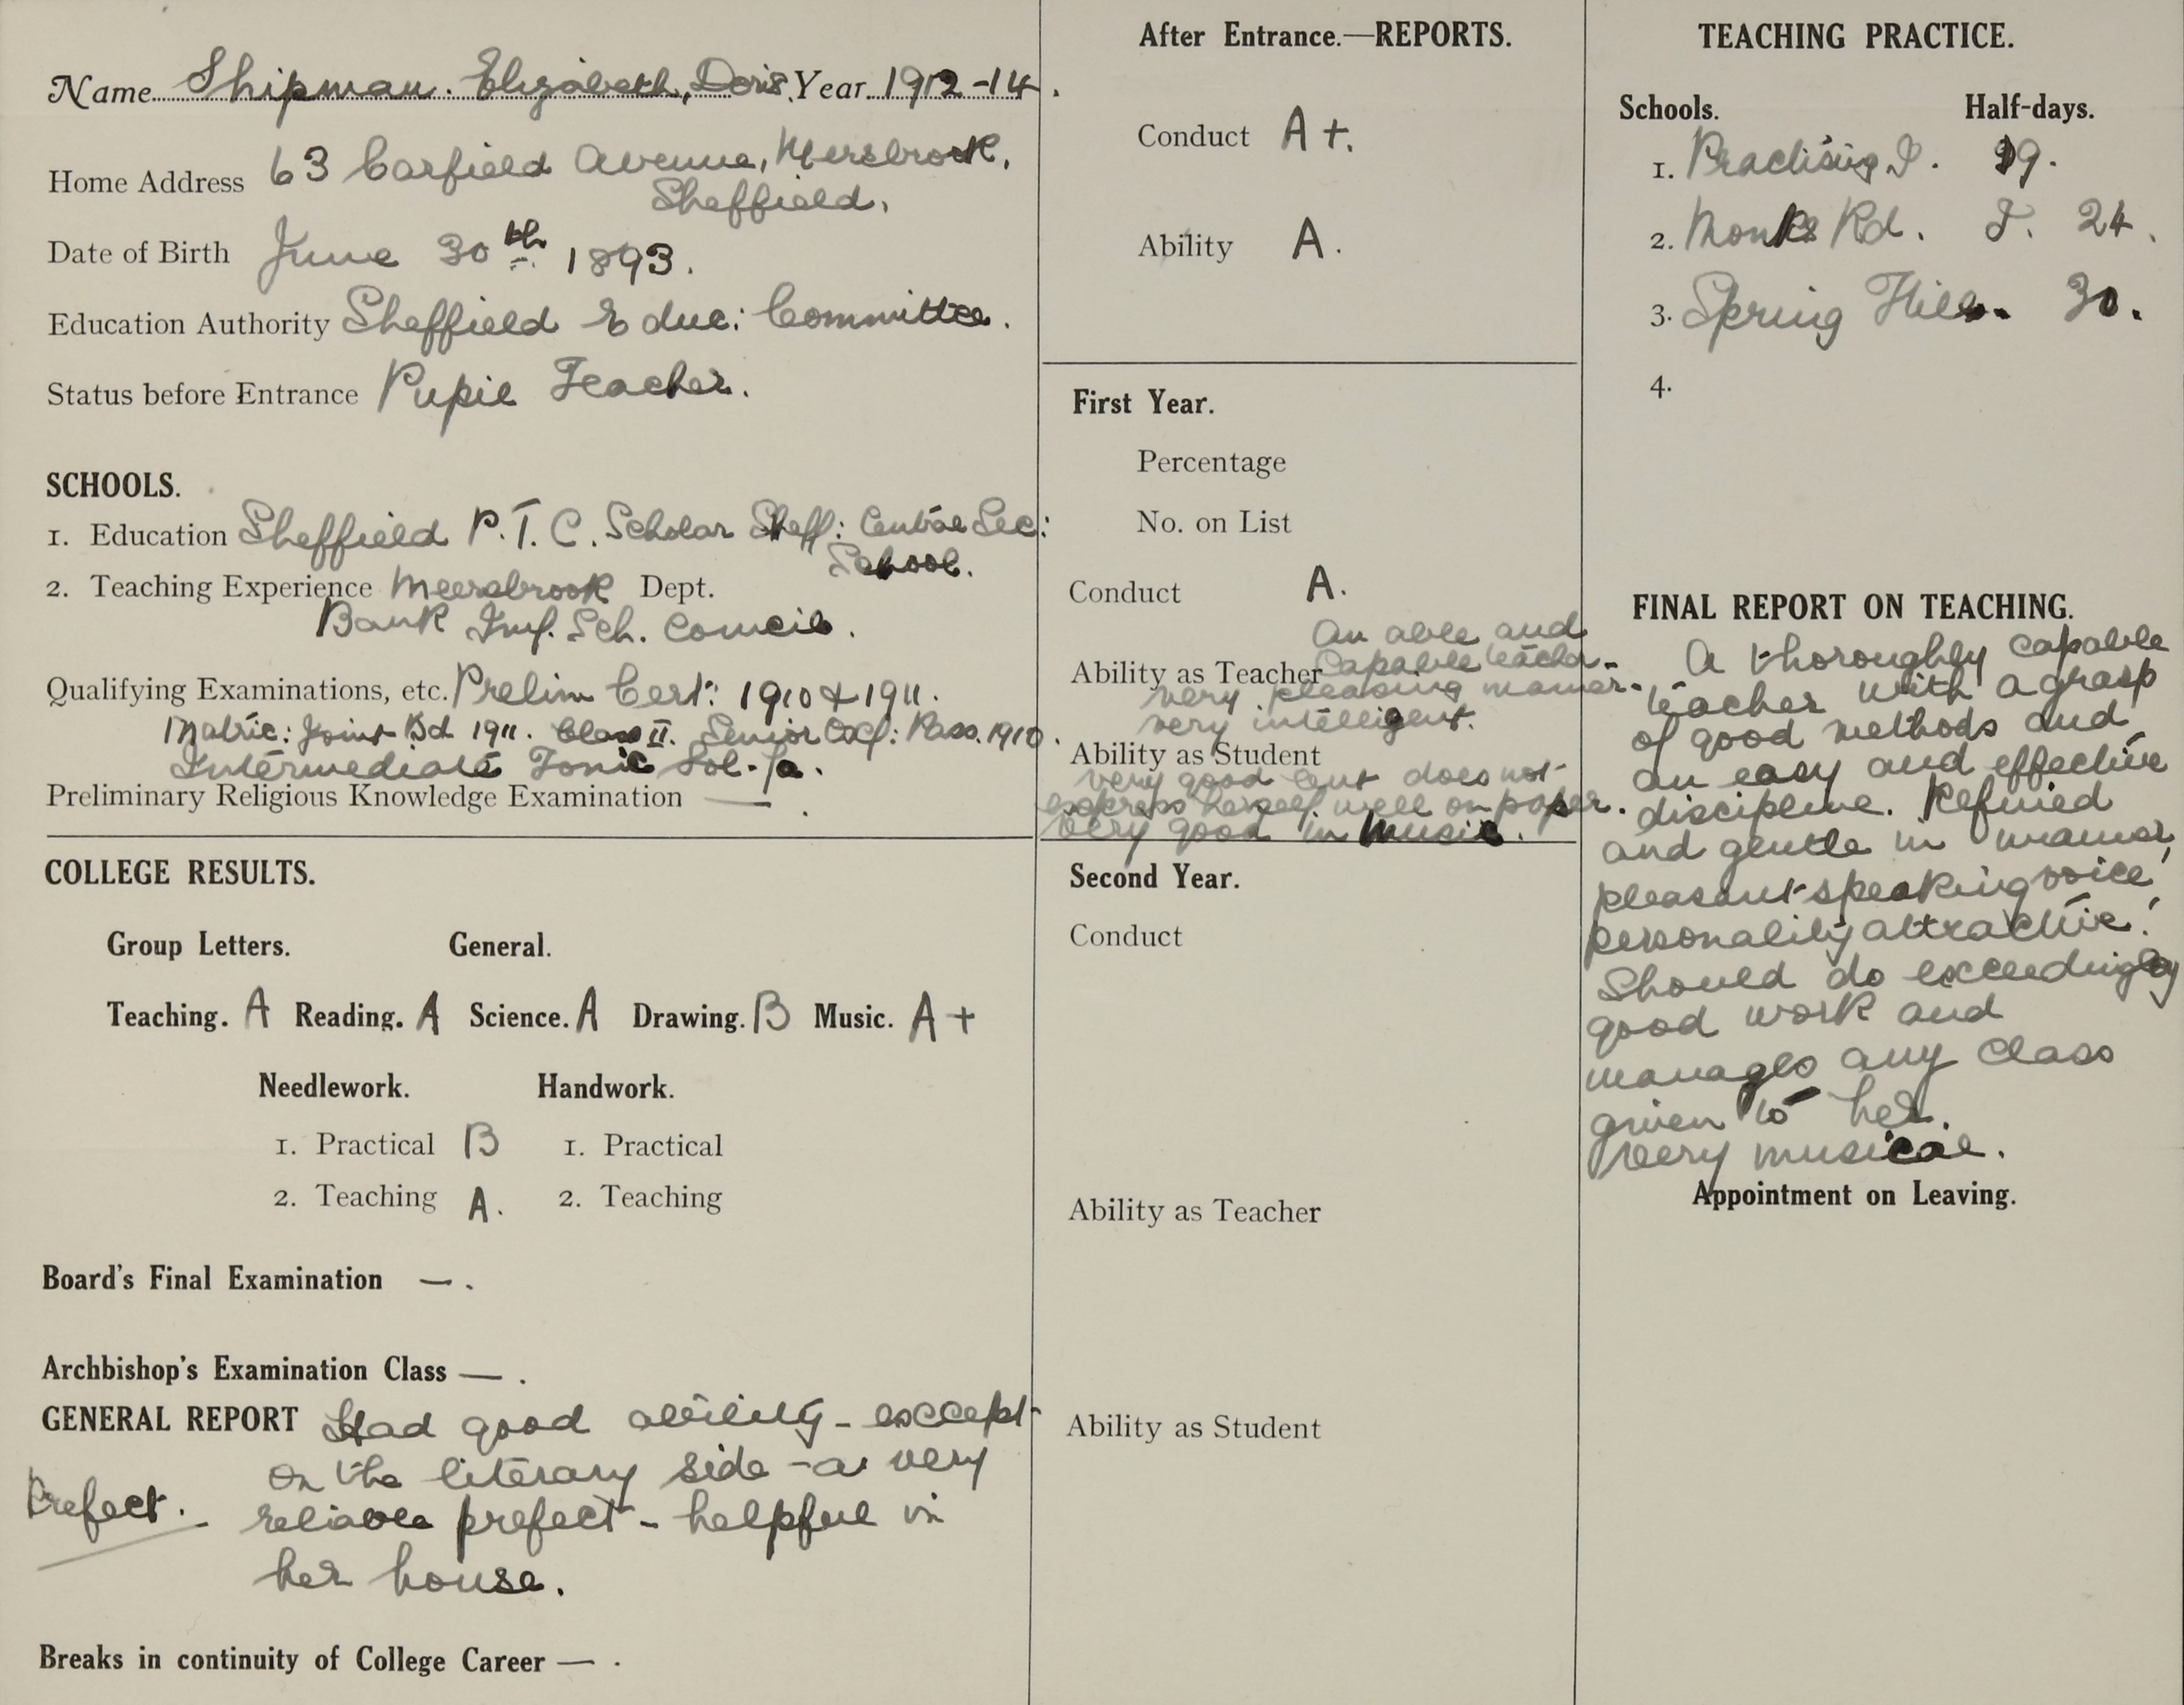 Name Shipman. Elizabeth, Doris. Year 1912-14.
Home Address 63 Carfield Avenue, Mersbrook,
Sheffield.
Date of Birth June 30th 1893.
Education Authority Sheffield Educ: Committee.
Status before Entrance Pupil Teacher.
SCHOOLS.
1. Education Sheffield P.T.C. Scholar Sheff: Central Sec:
School.
2. Teaching Experience Meersbrook Dept.
Bank Inf. Sch. Council.
Qualifying Examinations, etc. Prelim Cert: 1910 & 1911.
Matric: Joint Bd 1911. Class II. Senior Oxf: Pass. 1910.
Intermediate Tonic Sol-fa.
Preliminary Religious Knowledge Examination — .
COLLEGE RESULTS.
Group Letters. General.
Teaching. A Reading. A Science. A Drawing. B Music. A+
Needlework. Handwork.
1. Practical B 1. Practical
2. Teaching A. 2. Teaching
Board's Final Examination — .
Archbishop's Examination Class — .
GENERAL REPORT Had good ability - except
on the literary side - a very
Prefect. reliable prefect - helpful in
her house.
Breaks in continuity of College Career — .
After Entrance.—REPORTS.
Conduct A+.
Ability A.
First Year.
Percentage
No. on List
Conduct A.
An able and
Ability as Teacher capable teacher -
very pleasing manner -
very intelligent.
Ability as Student
very good but does not
express herself well on paper.
Very good in Music.
Second Year.
Conduct
Ability as Teacher
Ability as Student
TEACHING PRACTICE.
Schools. Half-days.
1. Practising I. 19.
2. Monks Rd. I. 24.
3. Spring Hill. 30.
4.
FINAL REPORT ON TEACHING.
A thoroughly capable
teacher with a grasp
of good methods and
an easy and effective
discipline. Refined
and gentle in manner,
pleasant speaking voice,
personality attractive.
Should do exceedingly
good work and
manages any class
given to her.
Very musical.
Appointment on Leaving.